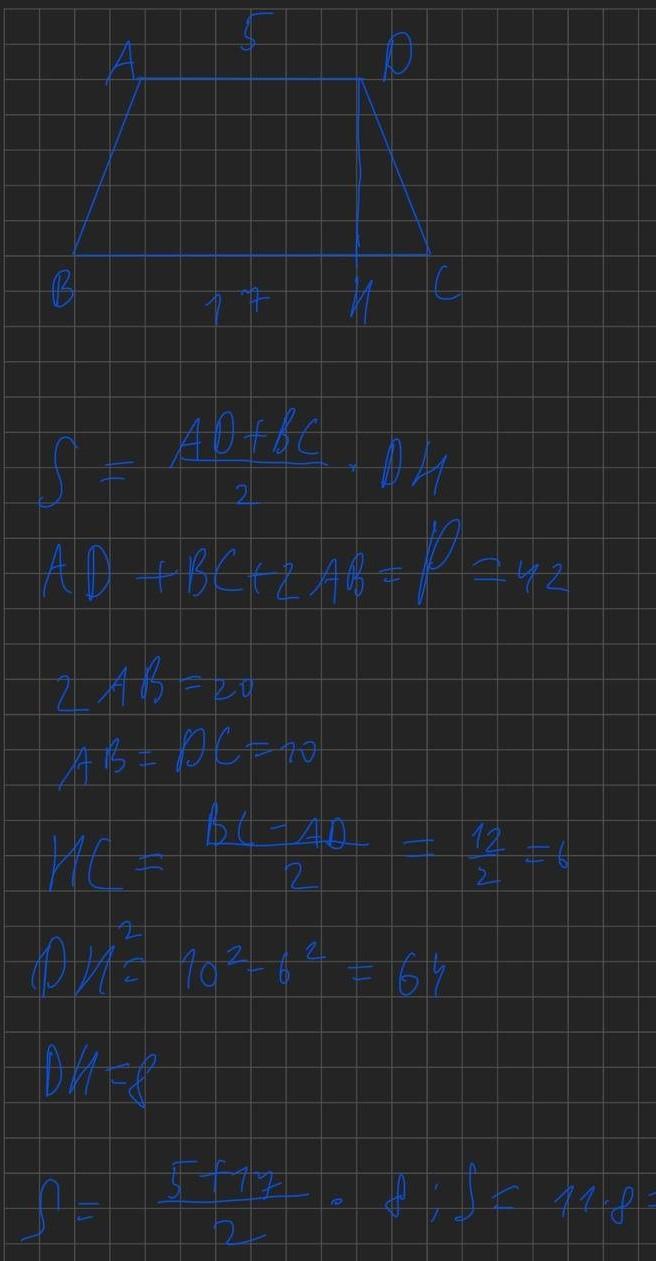 5
A D
B 17 H C
S = \frac{AD+BC}{2} \cdot DH
AD + BC + 2AB = P = 42
2AB = 20
AB = DC = 10
HC = \frac{BC - AD}{2} = \frac{12}{2} = 6
DH^2 = 10^2 - 6^2 = 64
DH = 8
S = \frac{5+17}{2} \cdot 8 ; S = 11 \cdot 8 =